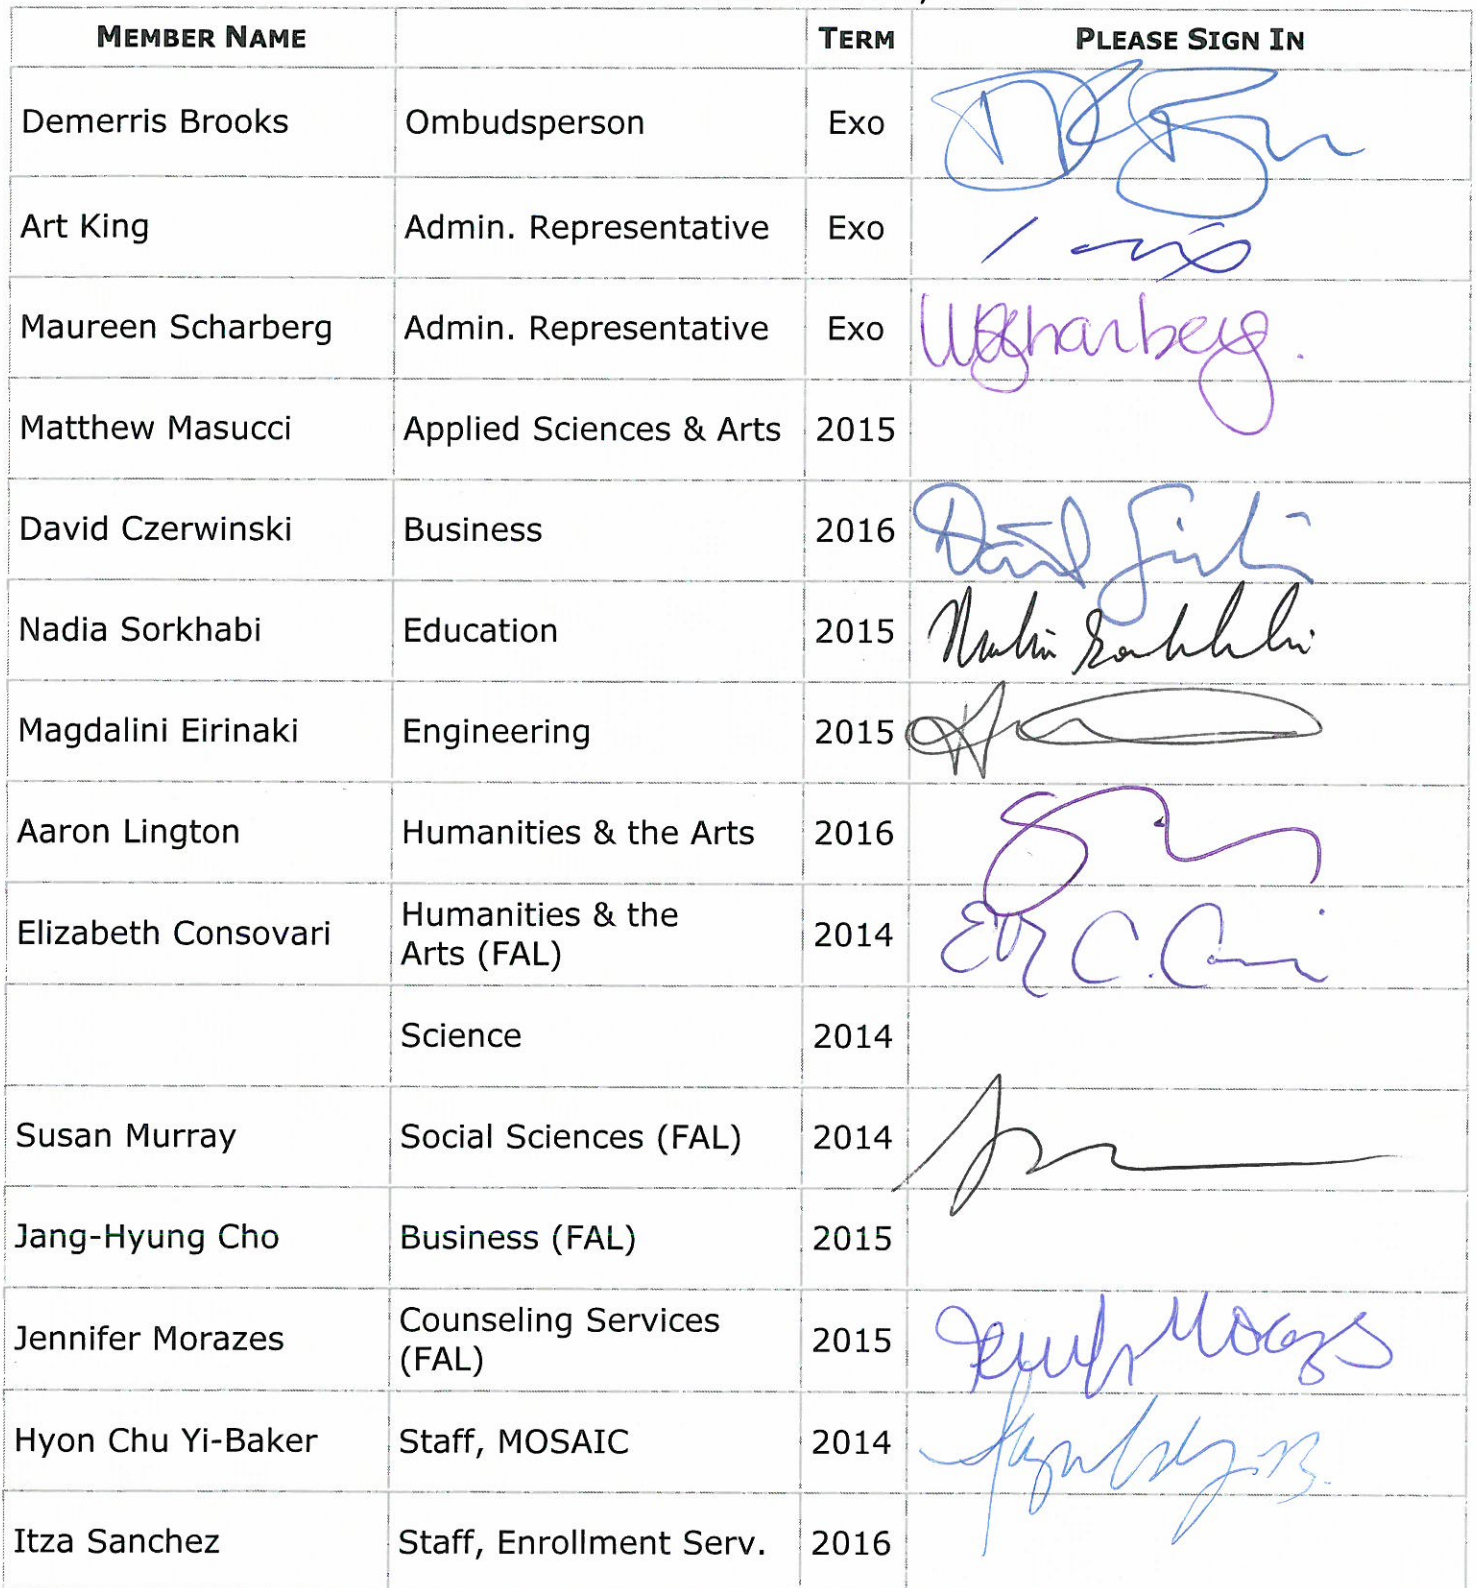 MEMBER NAME TERM PLEASE SIGN IN
Demerris Brooks Ombudsperson Exo
Art King Admin. Representative Exo
Maureen Scharberg Admin. Representative Exo
Matthew Masucci Applied Sciences & Arts 2015
David Czerwinski Business 2016
Nadia Sorkhabi Education 2015
Magdalini Eirinaki Engineering 2015
Aaron Lington Humanities & the Arts 2016
Elizabeth Consovari Humanities & the
Arts (FAL) 2014
Science 2014
Susan Murray Social Sciences (FAL) 2014
Jang-Hyung Cho Business (FAL) 2015
Jennifer Morazes Counseling Services
(FAL) 2015
Hyon Chu Yi-Baker Staff, MOSAIC 2014
Itza Sanchez Staff, Enrollment Serv. 2016